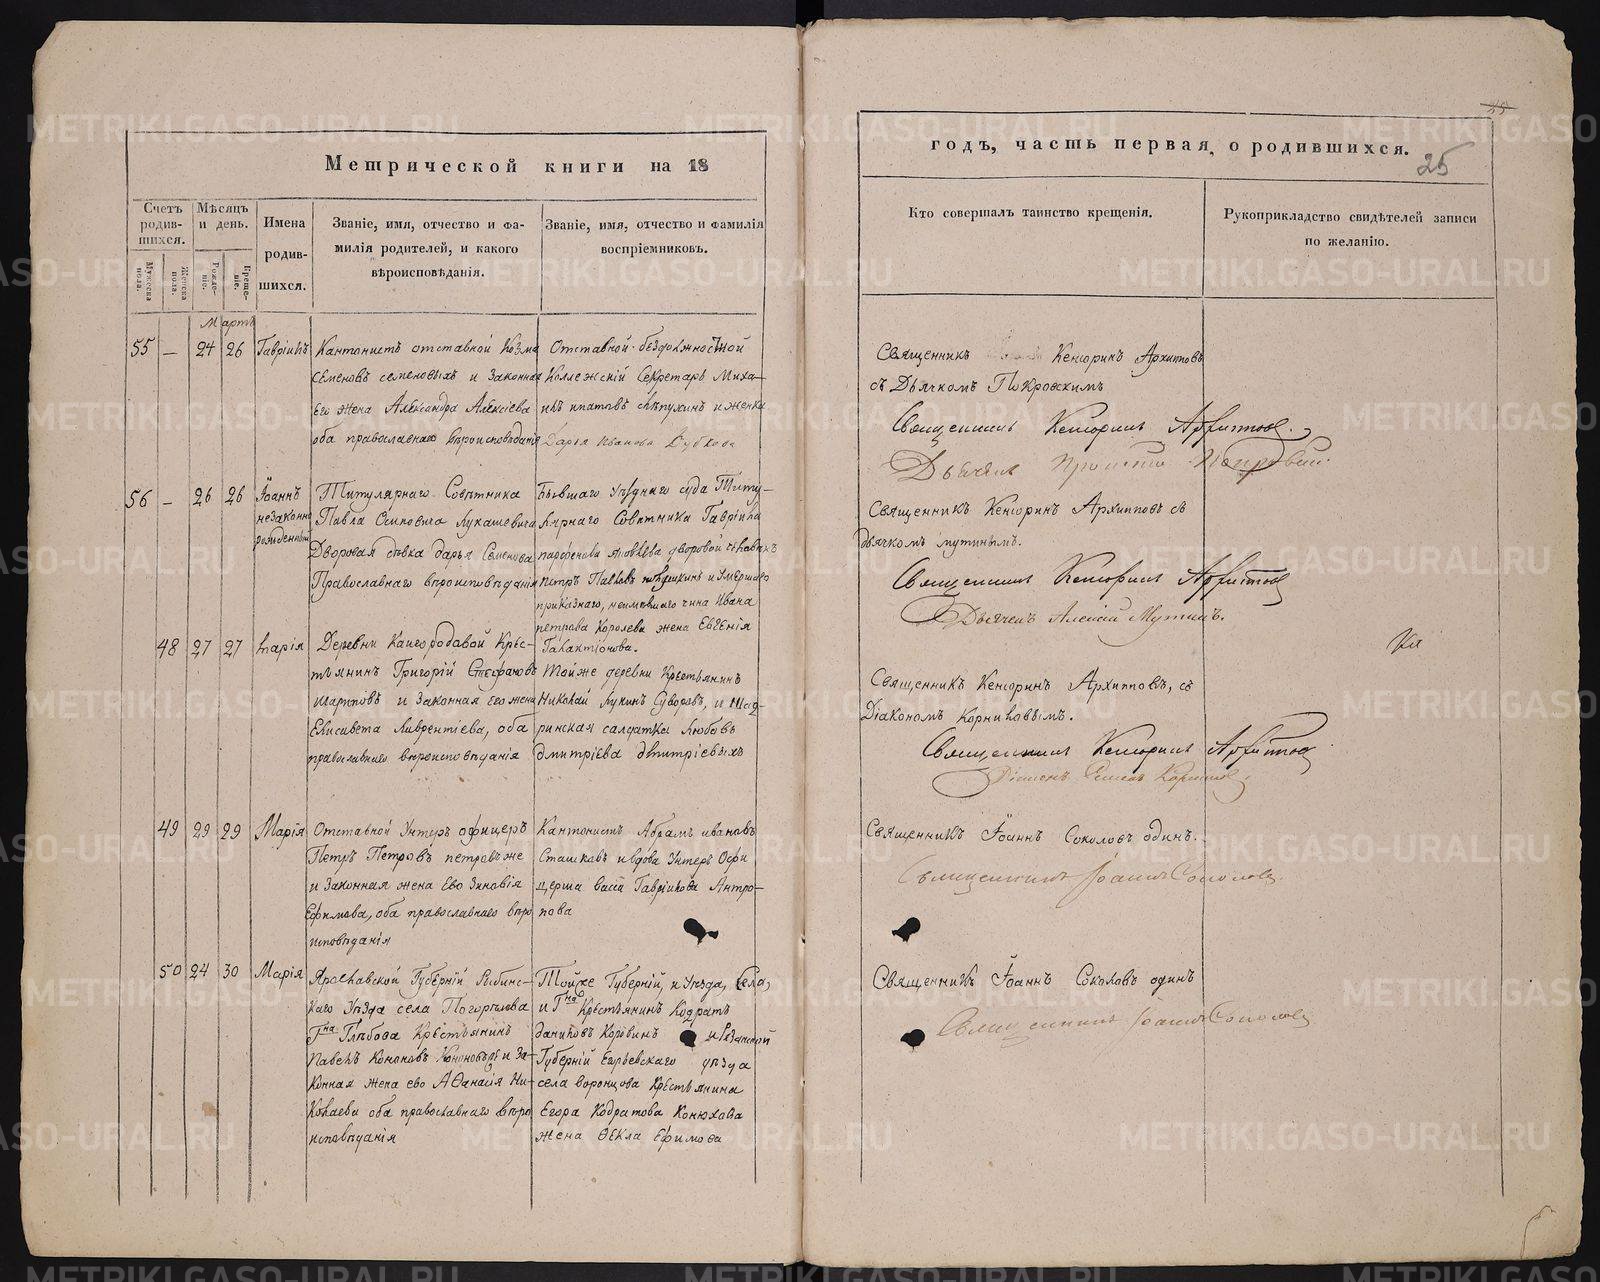 Метрической книги на 18
Счетъ родив-шихся.
Мужеска пола.
Женска пола.
Мѣсяцъ и день.
Рожде-ніе.
Креще-ніе.
Имена родив-шихся.
Званіе, имя, отчество и фа-
милія родителей, и какого
вѣроисповѣданія.
Званіе, имя, отчество и фамилія
воспріемниковъ.
Мартъ
55 — 24 26 Гавріилъ
Кантонистъ отставной Козма
Семеновъ семеновыхъ и законная
Его жена Александра Алексіева
оба православнаго вѣроисповѣданія
Отставной бездолжностной
Коллежскій Секретарь Миха-
илъ и женка
Дарья Иванова
56 — 26 26 Іоаннъ
незаконно
рожденный
Титулярнаго Совѣтника
Павла Осиповича Лукашевича
Дворовая дѣвка дарья Семенова
Православнаго вѣроисповѣданія
Бывшаго Уѣзднаго суда Титу-
лярнаго Совѣтника Гавріила
дворовой человѣкъ
петръ Павловъ и Умершаго
приказнаго, неимѣвшаго чина Ивана
петрова Королева жена Евгенія
Галактіонова.
48 27 27 Марія
Деревни Кайгородовой Крес-
тьянинъ Григорій Стефановъ
и Законная Его жена
Елисавета Лаврентіева, оба
православнаго вѣроисповѣданія
Тойже деревни Крестьянинъ
Николай Лукинъ Суворовъ, и Шад-
ринская салдатка Любовь
дмитріева дмитріевыхъ
49 29 29 Марія
Отставной Унтеръ офицеръ
Петръ Петровъ петровъ же
и Законная жена Ево Зиновія
Ефимова, оба православнаго вѣро
исповѣданія
Кантонистъ Абрамъ ивановъ
Сташковъ и вдова Унтеръ Офи
церша васса Гавріилова Антро-
пова
50 24 30 Марія
Ярославской Губерніи Рыбинс-
каго Уѣзда села Погорѣлова
Гна Глѣбова Крестьянинъ
Павелъ Кононовъ Кононовъже и За-
конная жена ево Афанасія Ни-
колаева оба православнаго вѣро
исповѣданія
Тойже Губерніи, и Уѣзда, Села,
и Гна Крестьянинъ Кодратъ
даниловъ Коровинъ и Рязанской
Губерніи Егорьевскаго уѣзда
села воронцова Крестьянина
Егора Кодратова Конюхова
жена Ѳекла Ефимова
годъ, часть первая, о родившихся.
25
Кто совершалъ таинство крещенія.
Рукоприкладство свидѣтелей записи
по желанію.
Священникъ Кенсоринъ Архиповъ
съ Дьячкомъ Покровскимъ
Священникъ Кенсоринъ Архиповъ.
Дьячекъ Покровскій
Священникъ Кенсоринъ Архиповъ съ
дьячкомъ мутинымъ.
Священникъ Кенсоринъ Архиповъ
Дьячекъ Алексій Мутинъ.
Священникъ Кенсоринъ Архиповъ, съ
Діакономъ Корниловымъ.
Священникъ Кенсоринъ Архиповъ
Діаконъ Корниловъ
Священникъ Іоаннъ Соколовъ одинъ.
Священникъ Іоаннъ Соколовъ.
Священникъ Іоаннъ Соколовъ одинъ
Священникъ Іоаннъ Соколовъ
METRIKI.GASO-URAL.RU